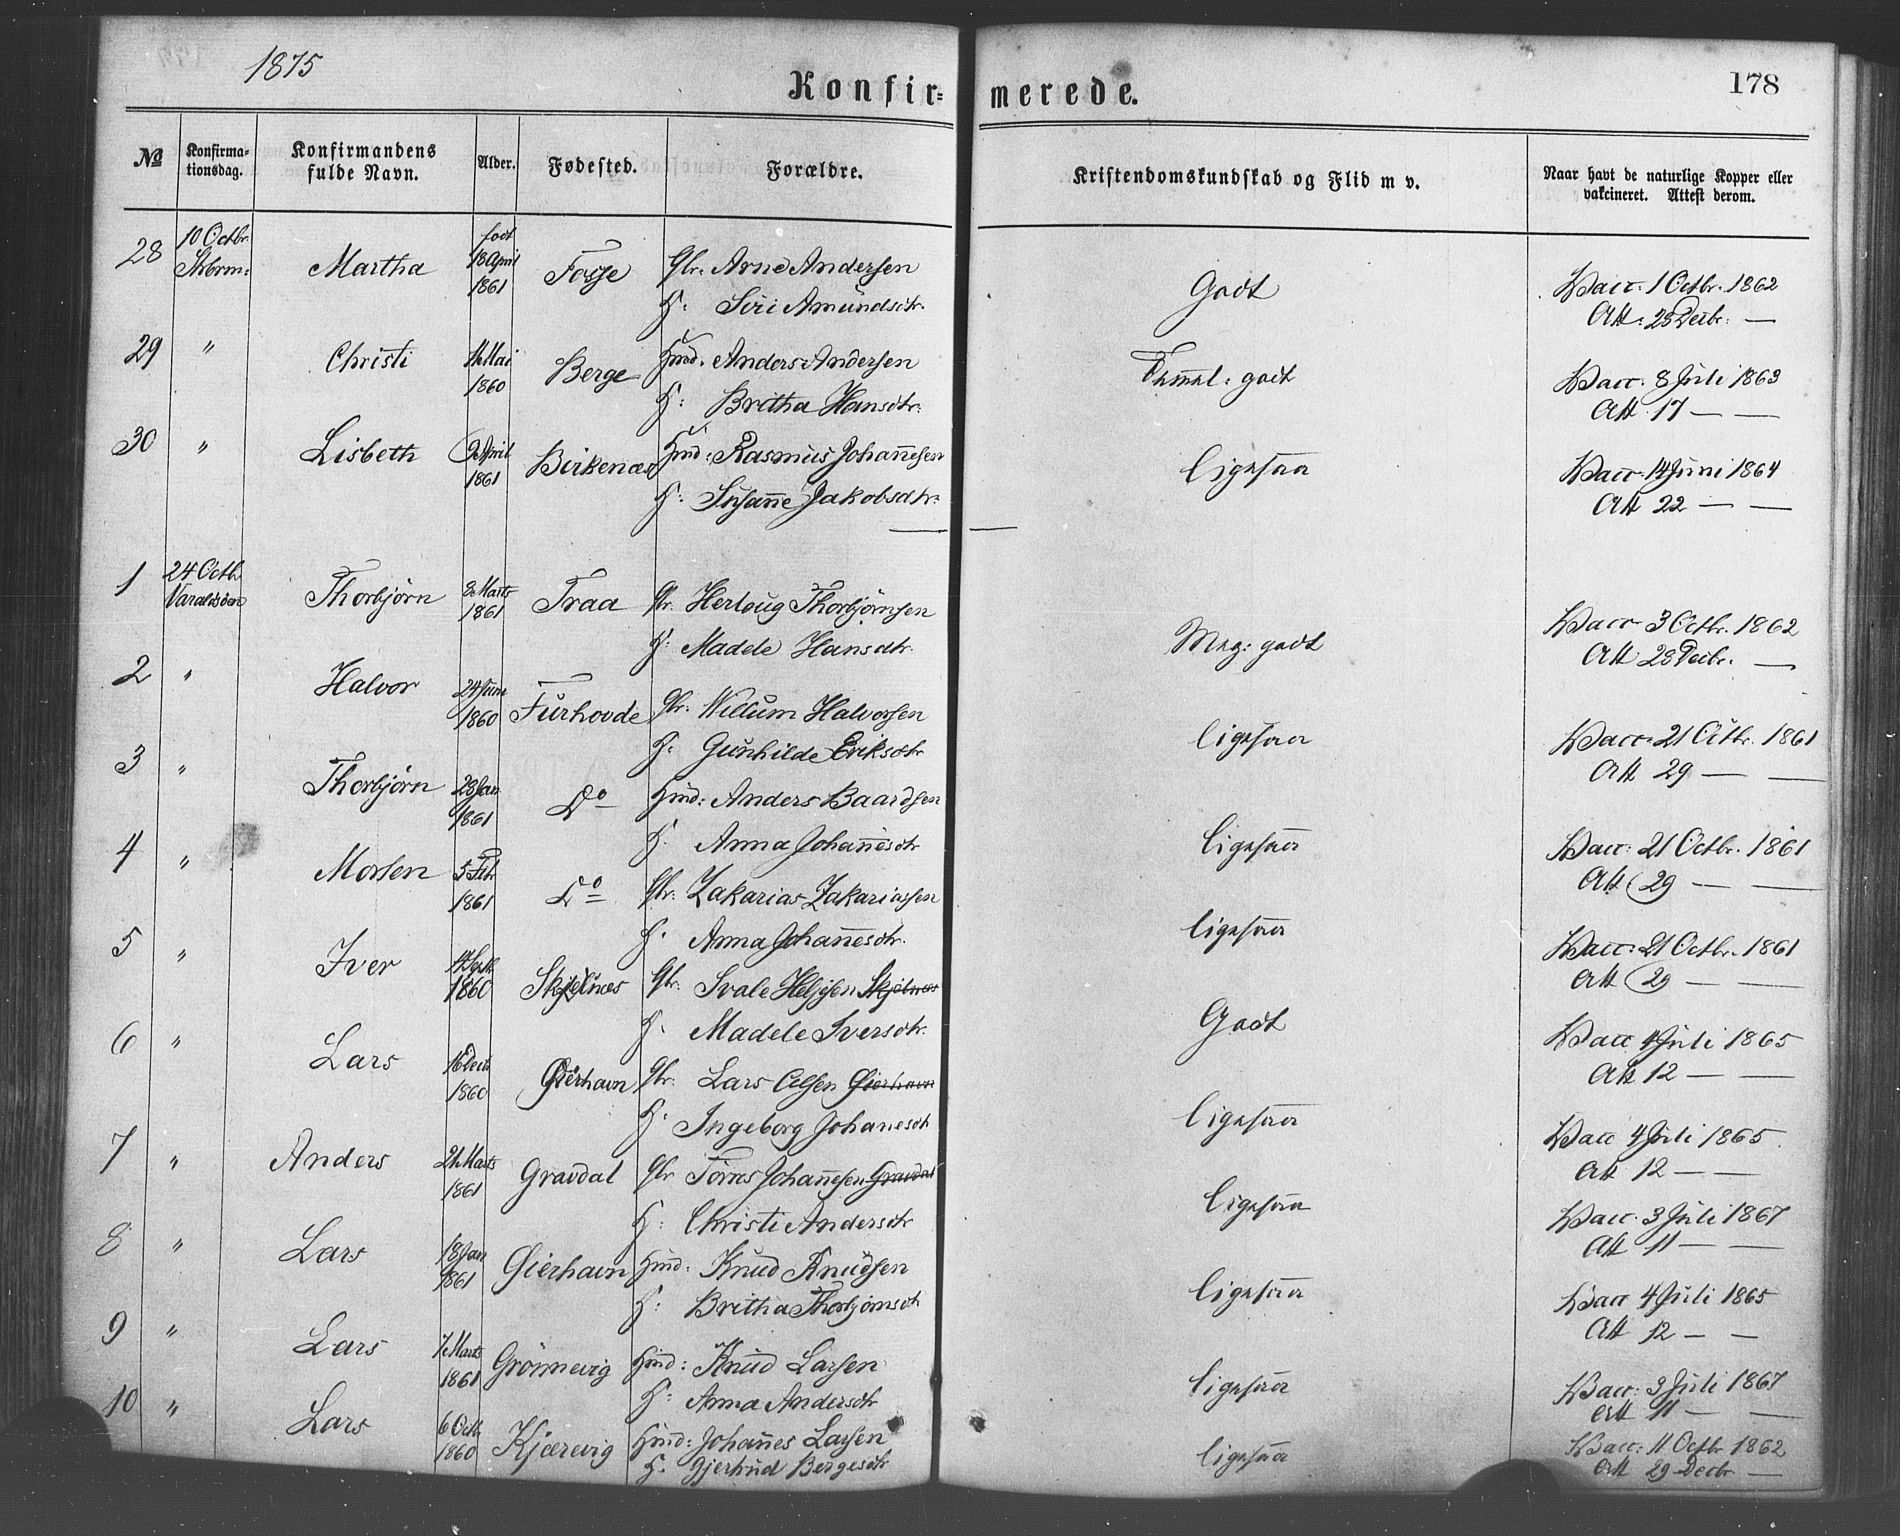 1875
Konfir= merede.
178
No
Konfirma-
tionsdag.
Konfirmandens
fulde Navn.
Alder.
Fødested.
Forældre.
Kristendomskundskab og Flid m v.
Naar havt de naturlige Kopper eller
vakcineret. Attest derom.
28 10 Octbr. Martha født 18 April 1861 Gbr. Arne Andersen
H: Siri Amundsdtr.
Godt
Vacc: 1 Octbr. 1862
Att: 23 Decbr: —
29 " Christi Mai 1860 Berge Hmd. Anders Andersen
H: Britha Hansdtr.
Temml: godt
Vacc. 8 Juli 1863
Att 17 — —
30 " Lisbeth April 1861 Birkenæs Hmd: Rasmus Johannesen
H: Susanne Jakobsdtr.
ligesaa
Vacc. 14 Juni 1864
Att 22 — —
1 24 Octb. Varaldsöen Thorbjörn 8 Marts 1861 Traa Gbr. Herloug Thorbjörnsen
H: Madele Hansdtr.
Meg: godt
Vacc 3 Octbr. 1862
Att 23 Decbr. —
2 " Halvor 24 Juni 1860 Furhovde Gbr. Willum Halvorsen
H. Gunhilde Eriksdtr
ligesaa
Vacc. 21 Octbr. 1861
Att 29 — —
3 " Thorbjörn 28 Jan 1861 Do Hmd: Anders Baardsen
H. Anna Johannesdtr
ligesaa
Vacc: 21 Octbr. 1861
Att 29 — —
4 " Morten 5 Febr 1861 Do Gbr. Zakarias Zakariasen
H. Anna Johannesdtr.
ligesaa
Vacc: 21 Octbr. 1861
Att 29 — —
5 " Iver 1860 Skjelnæs Gbr. Svale Helgesen Skjelnæs
H. Madele Iversdtr.
Godt
Vacc 4 Juli 1865
Att 12 — —
6 " Lars 16 1860 Gjerhavn Gbr: Lars Olsen Gierhavn
H. Ingeborg Johanesdtr
ligesaa
Vacc 4 Juli 1865
Att 12 — —
7 " Anders 21 Marts 1861 Gravdal Gbr Tørres Johannesen Gravdal
H: Christi Andersdtr
ligesaa
Vacc. 3 Juli 1867
Att 11 — —
8 " Lars 18 Jan 1861 Gierhavn Hmd: Knud Knudsen
H: Britha Thorbjörnsdtr
ligesaa
Vacc 4 Juli 1865
Att 12 — —
9 " Lars 7 Marts 1861 Grönnevig Hmd: Knud Larsen
H: Anna Andersdtr
ligesaa
Vacc: 3 Juli 1867
Att 11 — —
10 " Lars 6 Octb. 1860 Kjærevig Hmd: Johannes Larsen
H. Gjertrud Bergesdtr
ligesaa
Vacc: 11 Octbr 1862
Att 29 Decbr —